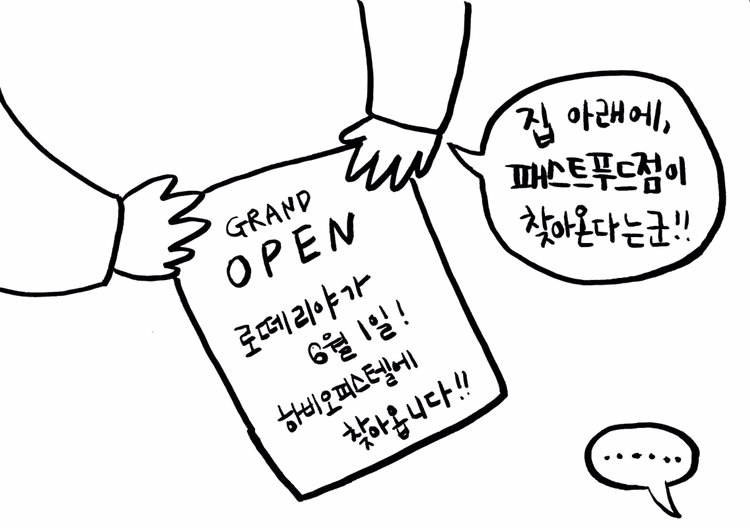 집 아래에,
패스트푸드점이
찾아온다는군!!
GRAND
OPEN
로떼리야가
6월 1일!
하비오피스텔에
찾아옵니다!!
......